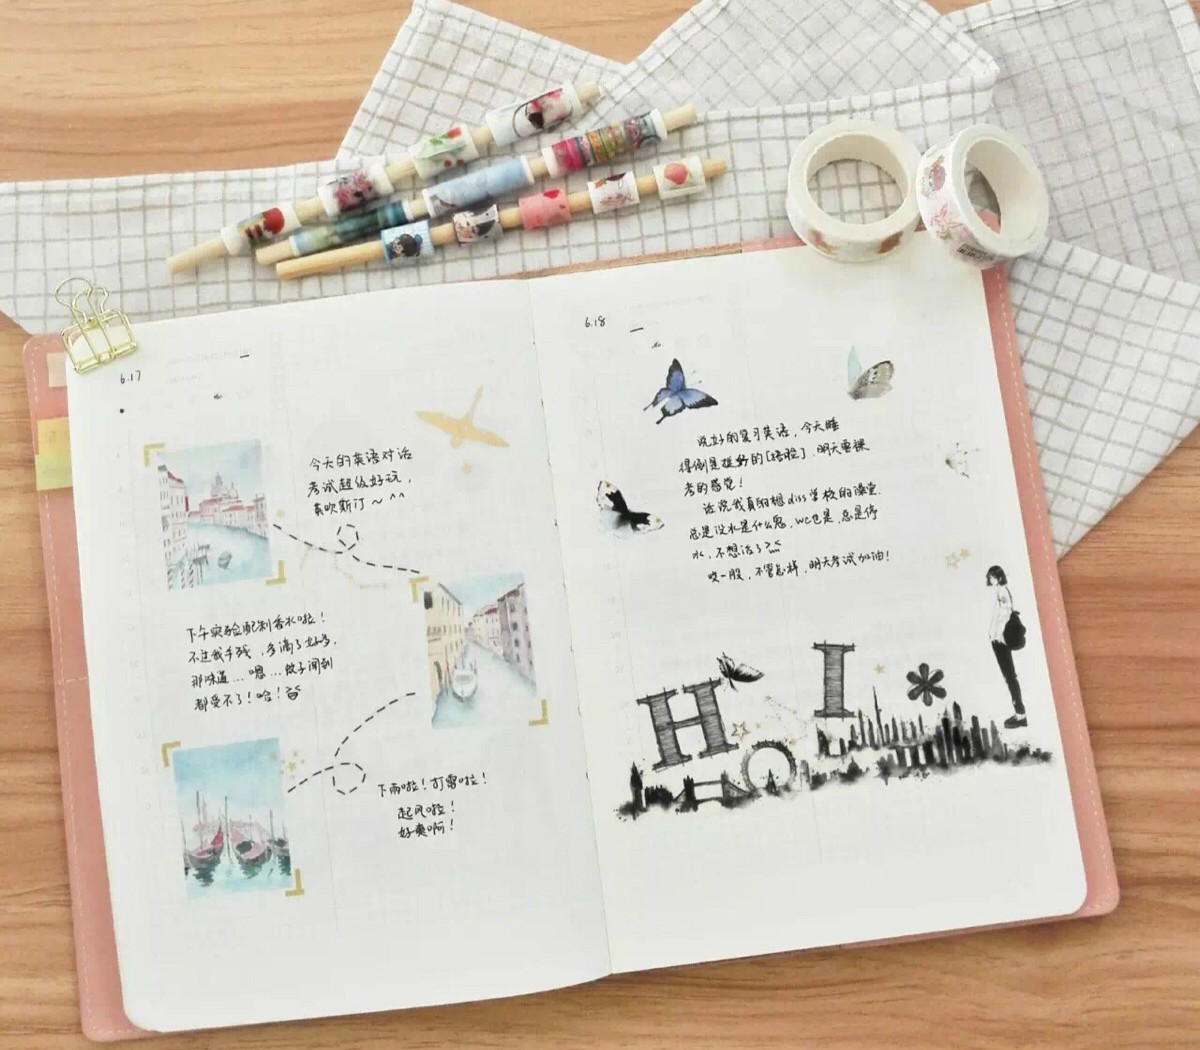 6.17
今天的英语对话
考试超级好玩，
真吹斯汀～^^
下午实验配制香水啦！
不过我手残，多滴了好多，
那味道…嗯…蚊子闻到
都受不了！哈！
下雨啦！打雷啦！
起风啦！
好爽啊！
6.18
说好的复习英语，今天睡
得倒是挺好的[捂脸]，明天要裸
考的感觉！
话说我真的想diss学校的澡堂.
总是没水是什么鬼，WC也是，总是停
水，不想活了
咬一股，不管怎样，明天考试加油！
HI*